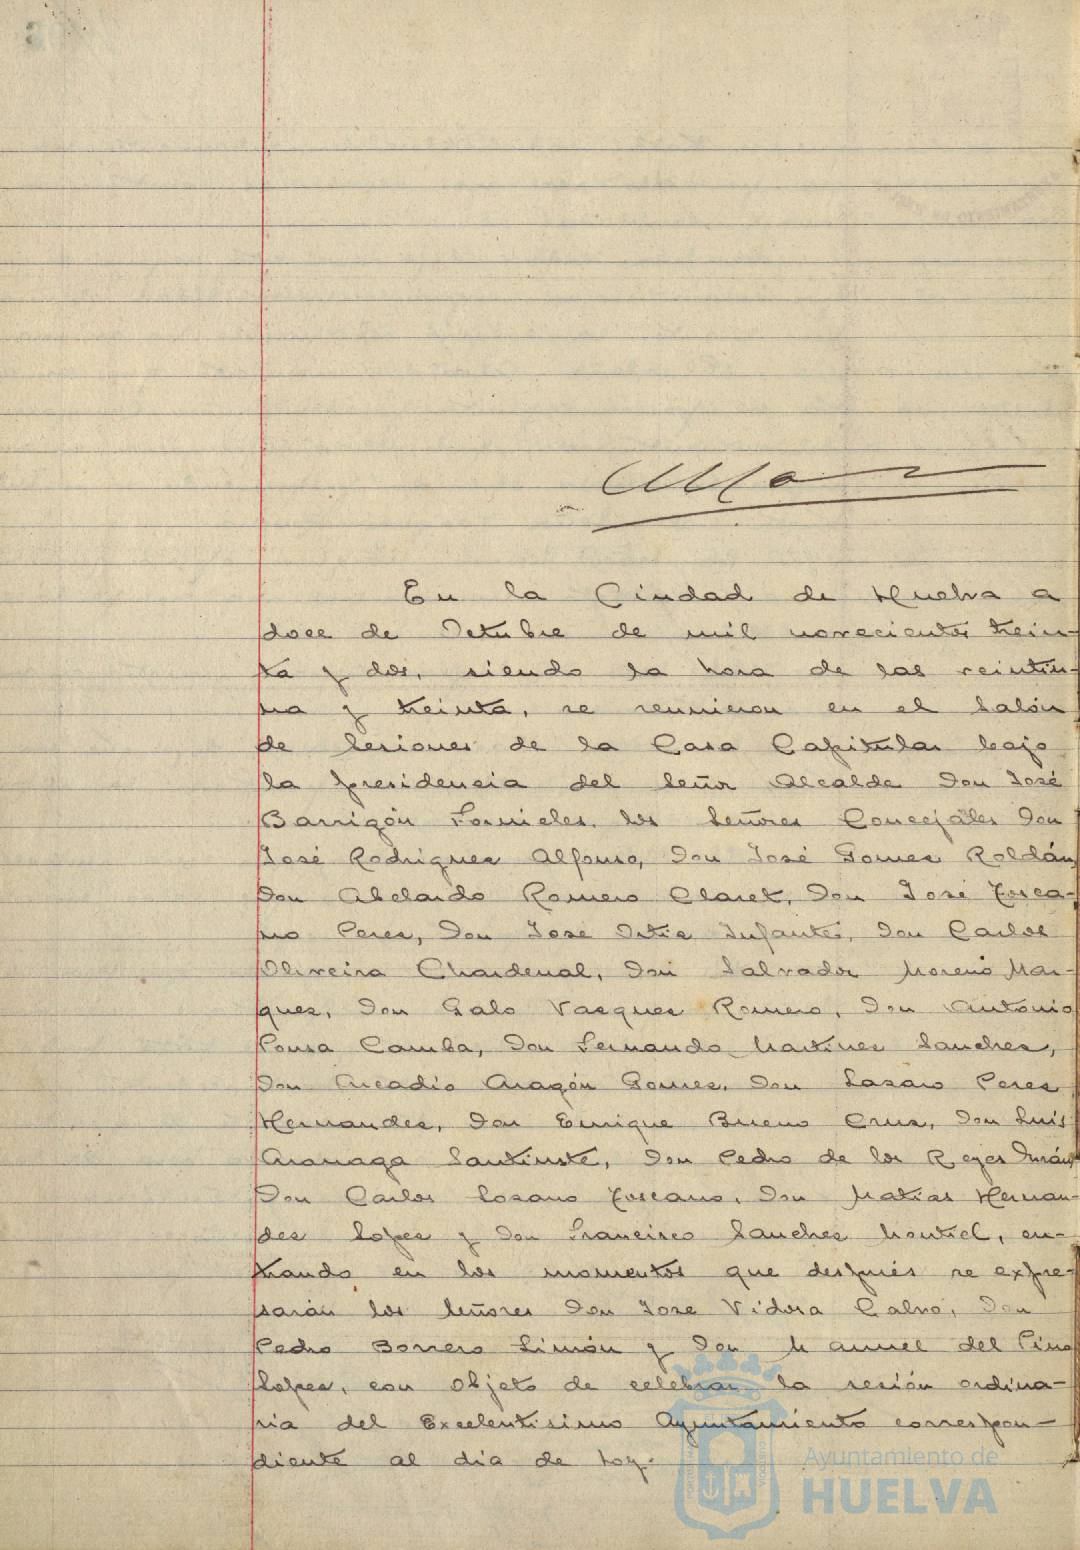 En la Ciudad de Huelva a
doce de Octubre de mil novecientos trein-
ta y dos, siendo la hora de las veintiu-
na y treinta, se reunieron en el Salón
de Sesiones de la Casa Capitular bajo
la presidencia del Señor Alcalde Don José
Barrigón Fornieles, los Señores Concejales Don
José Rodriguez Alfonso, Don José Gomez Roldán,
Don Abelardo Romero Claret, Don José Tosca-
no Perez, Don José Ortiz Infante, Don Carlos
Oliveira Chardenal, Don Salvador Moreno Mar-
quez, Don Galo Vazquez Romero, Don Antonio
Pousa Camba, Don Fernando Martinez Sanchez,
Don Arcadio Aragón Gomez, Don Lazaro Perez
Hernandez, Don Enrique Bueno Cruz, Don Luis
Aranaga Santinste, Don Pedro de los Reyes Durán,
Don Carlos Lozano Toscano, Don Matias Hernan-
dez Lopez y Don Francisco Sanchez Montiel, en-
trando en los momentos que después se expre-
sarán los Señores Don José Vidosa Calvo, Don
Pedro Borrero Limón y Don Manuel del Pino
Lopez, con objeto de celebrar la sesión ordina-
ria del Excelentisimo Ayuntamiento correspon-
diente al dia de hoy.
Ayuntamiento de
HUELVA